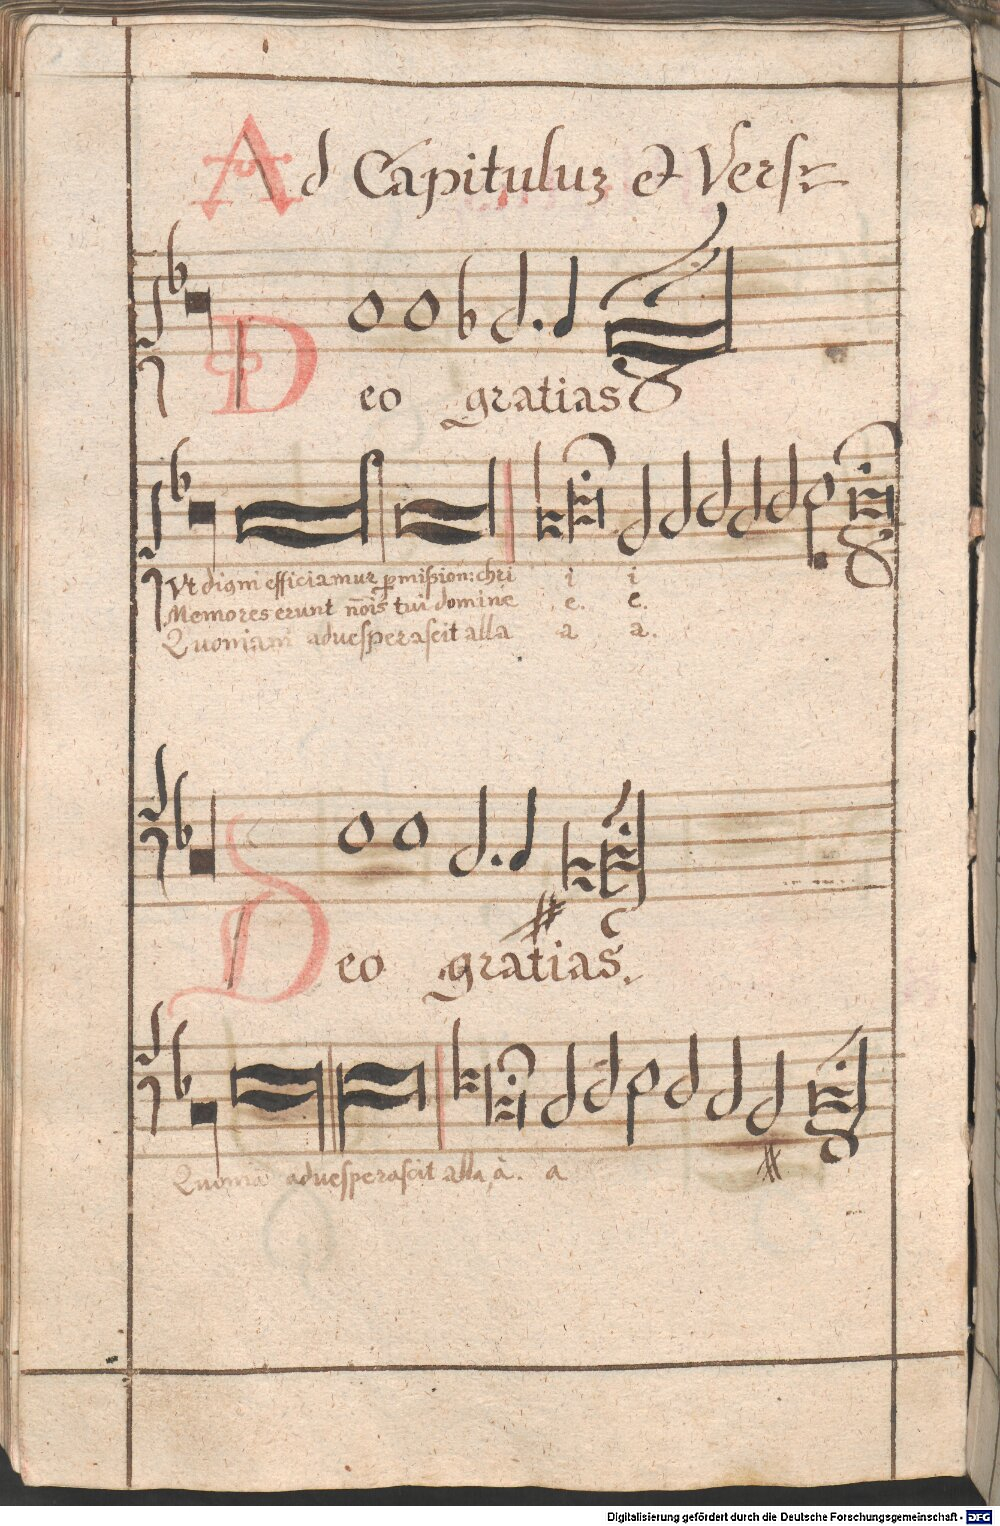 Ad Capituluz et Vers
Deo gratias
Vt digni efficiamur pmißion: chri i i
Memores erunt nois tui domine e. e.
Quoniam aduesperascit alla a a.
Deo gratias.
Quonia aduesperascit alla, a. a
Digitalisierung gefördert durch die Deutsche Forschungsgemeinschaft - DFG